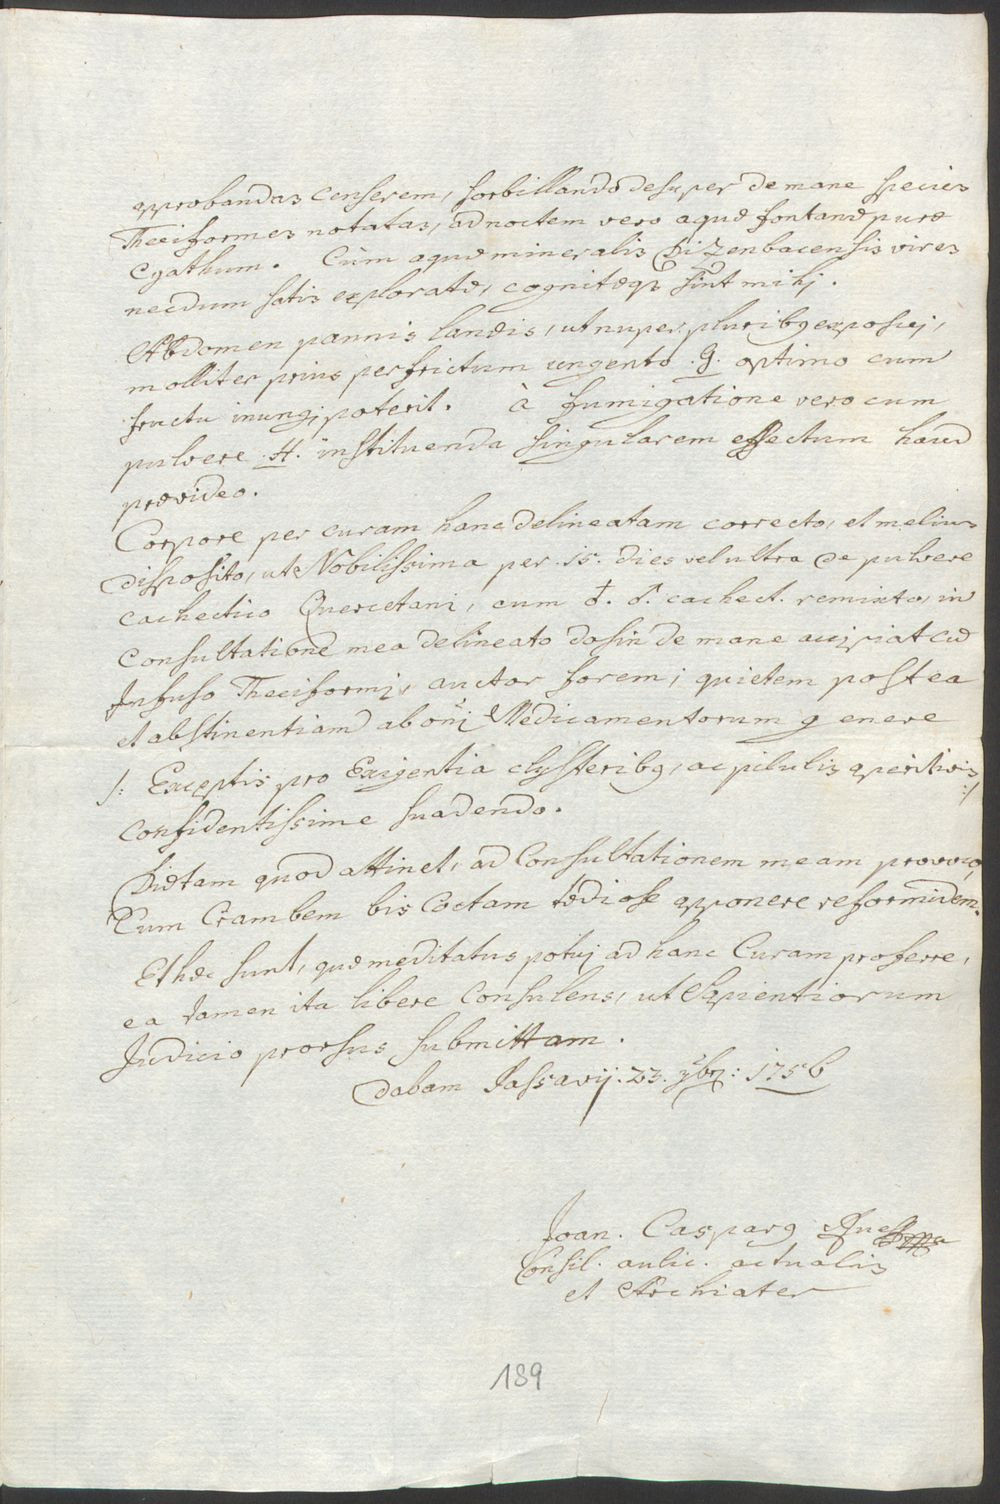 approbandas censerem, sorbillando desuper de mane species
Theeiformes notatas, ad noctem vero aquæ fontanæ puræ
cyathum. Cùm aquæ mineralis Dizenbacensis vires
necdum satis exploratæ, cognitæqs sint mihj.
Abdomen pannis laneis, ut nuper pluribꝰ exposuj,
molliter prius perfrictum ungento .G. optimo cum
fructu inungj poterit. à fumigatione vero cum
pulvere .H. instituenda singularem effectum haud
prævideo.
Corpore per curam hanc delineatam correcto, et melius
disposito, ut Nobilissima per .15. dies vel ultra de pulvere
cachectico Quercetani, cum ♂. ♂. cachect. remixto, in
Consultatione mea delineato dosin de mane accipiat cū
Infuso Theeiformj, auctor forem; quietem postea
et abstinentiam ab om̄j Medicamentorum genere
/: Exceptis pro Exigentia clysteribꝰ, ac pilulis aperitivis :/
confidentissime suadendo.
Diætam quod attinet, ad Consultationem meam provoco,
Cum Crambem bis Coctam tædiose apponere reformidem.
Et hæc sunt, quæ meditatus potuj ad hanc Curam proferre,
ea tamen ita libere Consulens, ut Sapientiorum
Judicio prorsus submittam.
dabam Passavij. 23. 7br: 1756
Joan. Casparꝰ
Consil. aulic. actualis
et Archiater
189